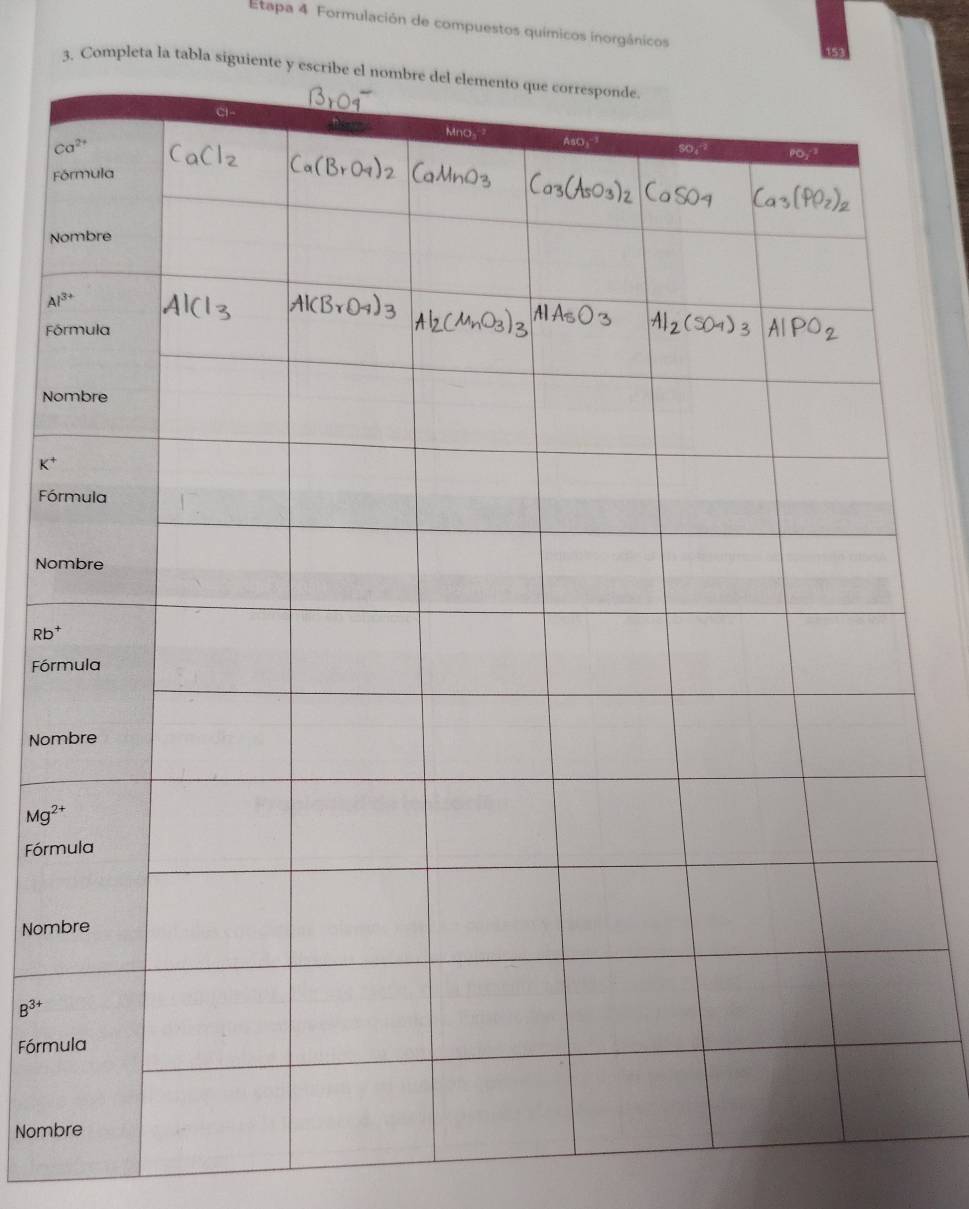 Etapa 4 Formulación de compuestos químicos inorgánicos
153
3. Completa la tabla siguiente y escribe el nombre del elemento que corresponde.
Cl- BrO4⁻ MnO₃⁻² AsO₃⁻³ SO₄⁻² PO₂⁻³
Ca²⁺
Fórmula CaCl2 Ca(BrO4)2 CaMnO3 Ca3(AsO3)2 CaSO4 Ca3(PO2)2
Nombre
Al³⁺
Fórmula AlCl3 Al(BrO4)3 Al2(MnO3)3 AlAsO3 Al2(SO4)3 AlPO2
Nombre
K⁺
Fórmula
Nombre
Rb⁺
Fórmula
Nombre
Mg²⁺
Fórmula
Nombre
B³⁺
Fórmula
Nombre